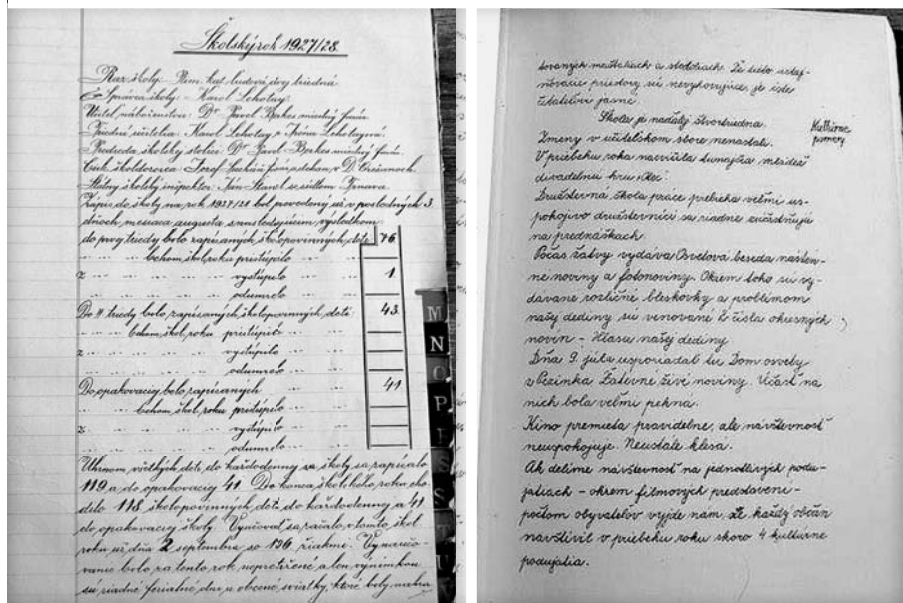 Školský rok 1927/28.
Ráz školy: Rím. kat. ľudová dvojtriedna.
Správca školy: Karol Lehotay.
Učiteľ náboženstva: Dr. Pavel Bakes miestny farár.
Triedni učitelia: Karol Lehotay, a Irena Lehotayová.
Predseda školskej stolice: Dr. Pavel Bakes miestny farár.
Cirk. školdozorca: Jozef farár, dekan, v D. Orešanoch.
Štátny školský inšpektor: Ján so sídlom Trnava.
Zápis do školy na rok 1927/28 bol prevedený už v posledných 3
dňoch mesiaca augusta s nasledujúcim výsledkom:
do prvej triedy bolo zapísaných školopovinných detí 76
behom škol. roku pristúpilo
z vystúpilo 1.
odumrelo
Do II. triedy bolo zapísaných školopovinných detí 43.
behom škol. roku pristúpilo
z vystúpilo
odumrelo
Do opakovacej bolo zapísaných 41
behom škol. roku pristúpilo
z vystúpilo
odumrelo
Úhrnom všetkých detí do každodennej sa školy sa zapísalo
119 a do opakovacej 41. Do konca školského roku cho-
dilo 118 školopovinných detí do každodennej a 41
do opakovacej školy. Vyučovať sa začalo v tomto škol.
roku už dňa 2 septembra so 136 žiakmi. Vyučo-
vanie bolo za tento rok nepretržené a len výnimkou
sú riadné feriálne dni a obecné sviatky, ktoré boly
M
N
O
P
R
S
T
U
V
tovaných meštekách a stodolách. Že tieto uskaj-
ňovacie priestory sú nevyhovujúce, je iste
čitateľovi jasné.
Škola je naďalej štvortriedna.
Kultúrne
pomery
Zmeny v učiteľskom sbore nenastali.
V priebehu roka nacvičila tunajšia mládež
divadelnú hru
Družstevná škola práce prebieha veľmi us-
pokojivo družstevníci sa riadne zúčastňujú
na prednáškach.
Počas žatvy vydáva Osvetová beseda násten-
né noviny a fotonoviny. Okrem toho sú vy-
dávané rozličné bleskovky a problémom
našej dediny sú venované 2 čísla okresných
novín - Hlasu našej dediny
Dňa 9. júla usporiadal tu Dom osvety
v Pezinku Žatevné živé noviny. Účasť na
nich bola veľmi pekná.
Kino premieta pravidelne, ale návštevnosť
neuspokojuje. Neustále klesá.
Ak delíme návštevnosť na jednotlivých podu-
jatiach - okrem filmových predstavení -
počtom obyvateľov vyjde nám, že každý občan
navštívil v priebehu roku skoro 4 kultúrne
podujatia.